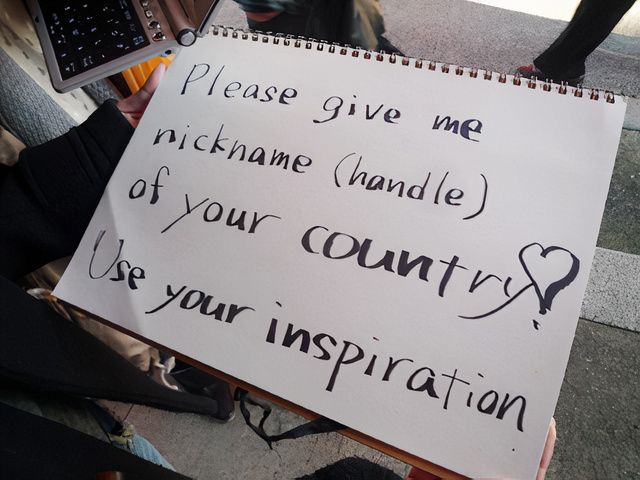 Please give me
nickname (handle)
of your country♡
Use your inspiration